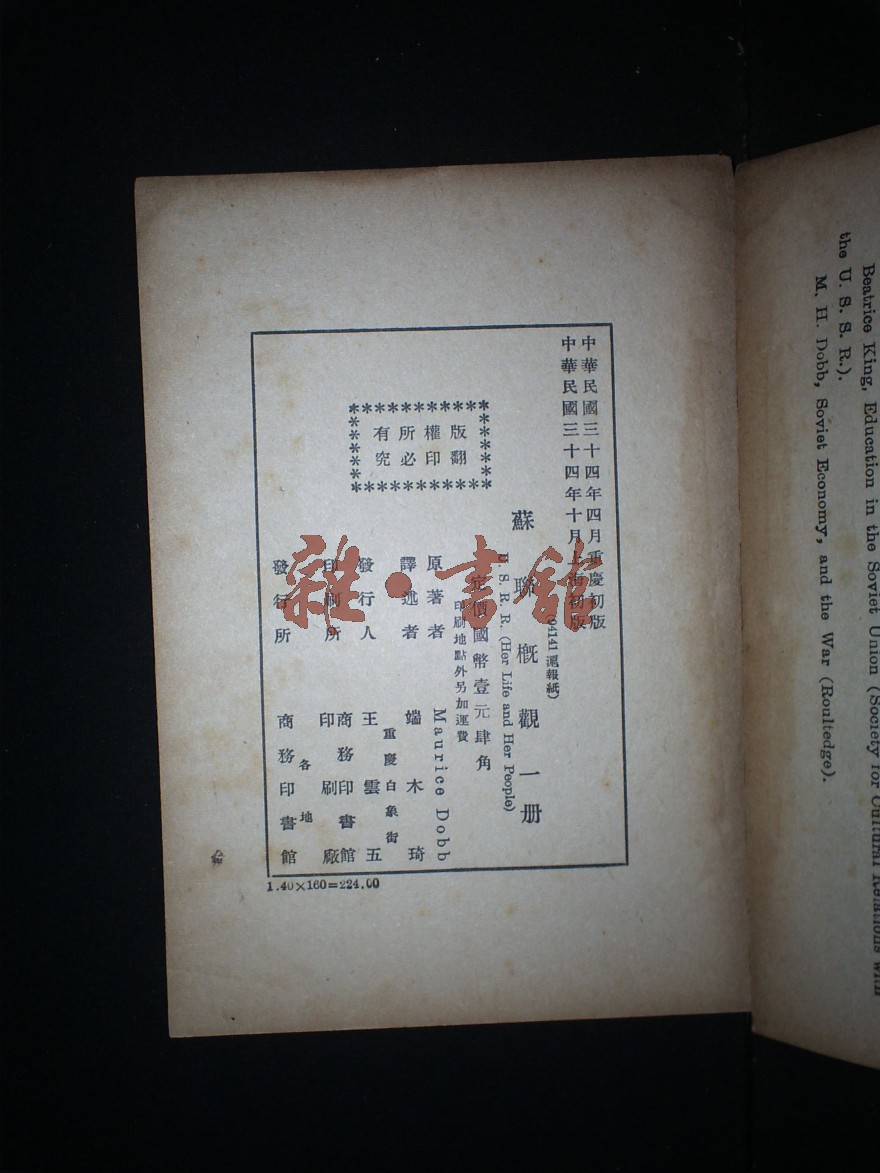 中華民國三十四年四月重慶初版
中華民國三十四年十月上海初版
(04141 滬報紙)
蘇聯概觀一册
U. S. R. R. (Her Life and Her People)
定價國幣壹元肆角
印刷地點外另加運費
版權所有
翻印必究
原著者 Maurice Dobb
譯述者 端木琦
重慶白象街
發行人 王雲五
印刷所 商務印書館
印刷廠
各地
發行所 商務印書館
1.40×160=224.00
雜·書館
Beatrice King, Education in the Soviet Union (Society for Cultural Relations with
the U. S. S. R.).
M. H. Dobb, Soviet Economy, and the War (Roultedge).